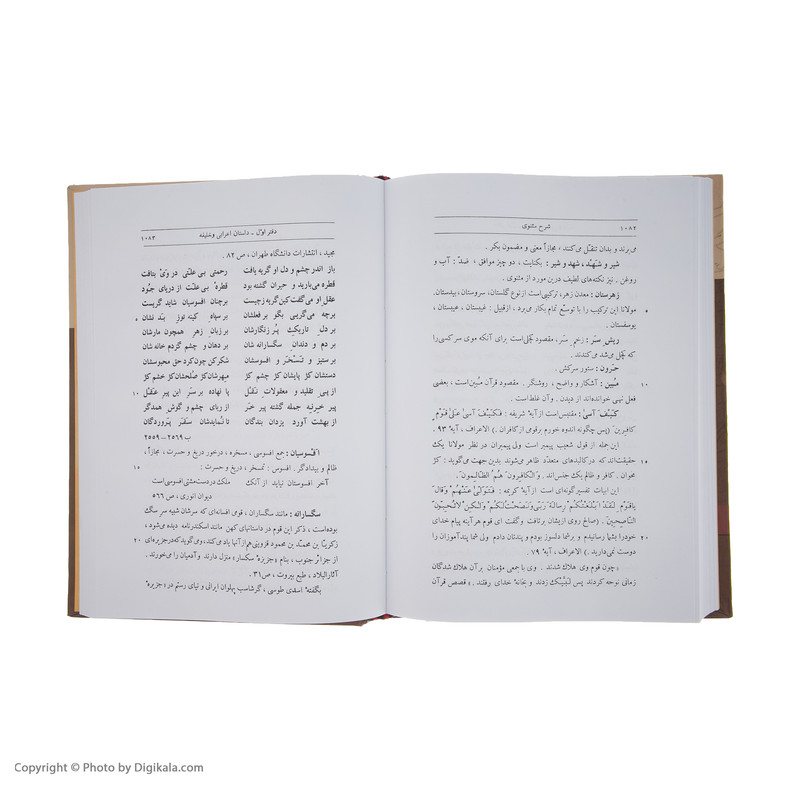 ۱۰۸۲
شرح مثنوی
می‌برند و بدان تنقّل می‌کنند ، مجازاً معنی و مضمون بکر .
شیر و شهد ، شهد و شیر : بکنایت ، دو چیز موافق ، ضدّ : آب و
روغن . نیز نکته‌های لطیف درین مورد از مثنوی .
زهرستان : معدن زهر ، ترکیبی است از نوع گلستان، سروستان، بیدستان.
مولانا این ترکیب را با توسّع تمام بکار می‌برد ، از قبیل : غیبستان ، عیبستان ،
یوسفستان .
ریش سر : زخم سر ، مقصود کچلی است برای آنکه موی سر کسی را
که کچل می‌شد می‌کندند .
حرون : ستور سرکش .
۱۰ مُبین : آشکار و واضح ، روشنگر . مقصود قرآن مُبین است ، بعضی
فعل نهی خوانده‌اند از دیدن . و آن غلط است .
کَیْفَ آسیٰ : مقتبس است از آیهٔ شریفه : فَکَیْفَ آسیٰ عَلیٰ قَوْمٍ
کافِرینَ (پس چگونه اندوه خورم برقومی از کافران .) الاعراف ، آیهٔ ۹۳ .
این جمله از قول شعیب پیمبر است ولی پیمبران در نظر مولانا یک
۱۵ حقیقت‌اند که در کالبدهای متعدّد ظاهر می‌شوند بدین جهت می‌گوید : کژ
مخوان . کافر و ظالم یک جنس‌اند . وَالْکافِرونَ هُمُ الظّالِمونَ .
این ابیات تفسیرگونه‌ای است از آیهٔ کریمه : فَتَوَلّیٰ عَنْهُمْ وَقالَ
یاقَوْمِ لَقَدْ اَبْلَغْتُکُمْ رِسالَةَ رَبّی وَنَصَحْتُ لَکُمْ وَلٰکِنْ لاتُحِبّونَ
النّاصِحینَ . (صالح روی از ایشان برتافت وگفت ای قوم هر آینه پیام خدای
۲۰ خود را بشما رسانیدم و برشما دلسوز بودم و پندتان دادم ولی شما پندآموزان را
دوست نمی‌دارید .) الاعراف ، آیهٔ ۷۹ .
«چون قوم وی هلاک شدند . وی با جمعی مؤمنان بر آن هلاک شدگان
زمانی نوحه کردند پس لبّیک زدند و بخانهٔ خدای رفتند . » قصص قرآن
دفتر اوّل ـ داستان اعرابی و خلیفه
۱۰۸۳
مجید ، انتشارات دانشگاه طهران ، ص ۸۲ .
باز اندر چشم و دل او گریه یافت رحمتی بی علّتی در وَیْ بتافت
قطره می‌بارید و حیران گشته بود قطرهٔ بی علّت از دریای جود
عقل او می‌گفت کین گریه ز چیست بر چنان افسوسیان شاید گریست
برچه می‌گریی بگو بر فعلشان بر سپاه کینه توز بد نشان
بر دل تاریک پر زنگارشان بر زبان زهر همچون مارشان
بر دم و دندان سگسارانه شان بر دهان و چشم گزدم خانه شان
بر ستیز و تسخر و افسوسشان شکر کن چون کرد حق محبوسشان
دستشان کژ پایشان کژ چشم کژ مهرشان کژ صلحشان کژ خشم کژ
از پی تقلید و معقولات نقل پا نهاده بر سر این پیر عقل ۱۰
پیر خر نه جمله گشته پیر خر از ریای چشم و گوش همدگر
از بهشت آورد یزدان بندگان تا نمایدشان سقر پروردگان
ب ۲۵۶۹ - ۲۵۵۹
افسوسیان : جمع افسوسی ، مسخره ، درخور دریغ و حسرت ، مجازاً ،
ظالم و بیدادگر . افسوس : تمسخر ، دریغ و حسرت : ۱۵
آخر افسوستان نیاید از آنک ملک در دست مشتی افسوسی است
دیوان انوری ، ص ۵۶۶
سگسارانه : مانند سگساران ، قومی افسانه‌ای که سرشان شبیه سر سگ
بوده است ، ذکر این قوم در داستانهای کهن مانند اسکندرنامه دیده می‌شود ،
زکریّا بن محمّد بن محمود قزوینی هم از آنها یاد می‌کند، و می‌گوید که در جزیره‌ای ۲۰
از جزائر جنوب ، بنام «جزیرهٔ سگسار» منزل دارند و آدمیان را می‌خورند .
آثارالبلاد ، طبع بیروت ، ص ۳۱ .
بگفتهٔ اسدی طوسی ، گرشاسب پهلوان ایرانی و نیای رستم در «جزیرهٔ
Copyright © Photo by Digikala.com